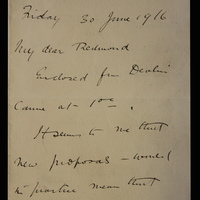 Friday 30 June 1916
My dear Redmond
Enclosed from Devlin
came at 1
It seems to me that
new proposals – would
in practice mean that